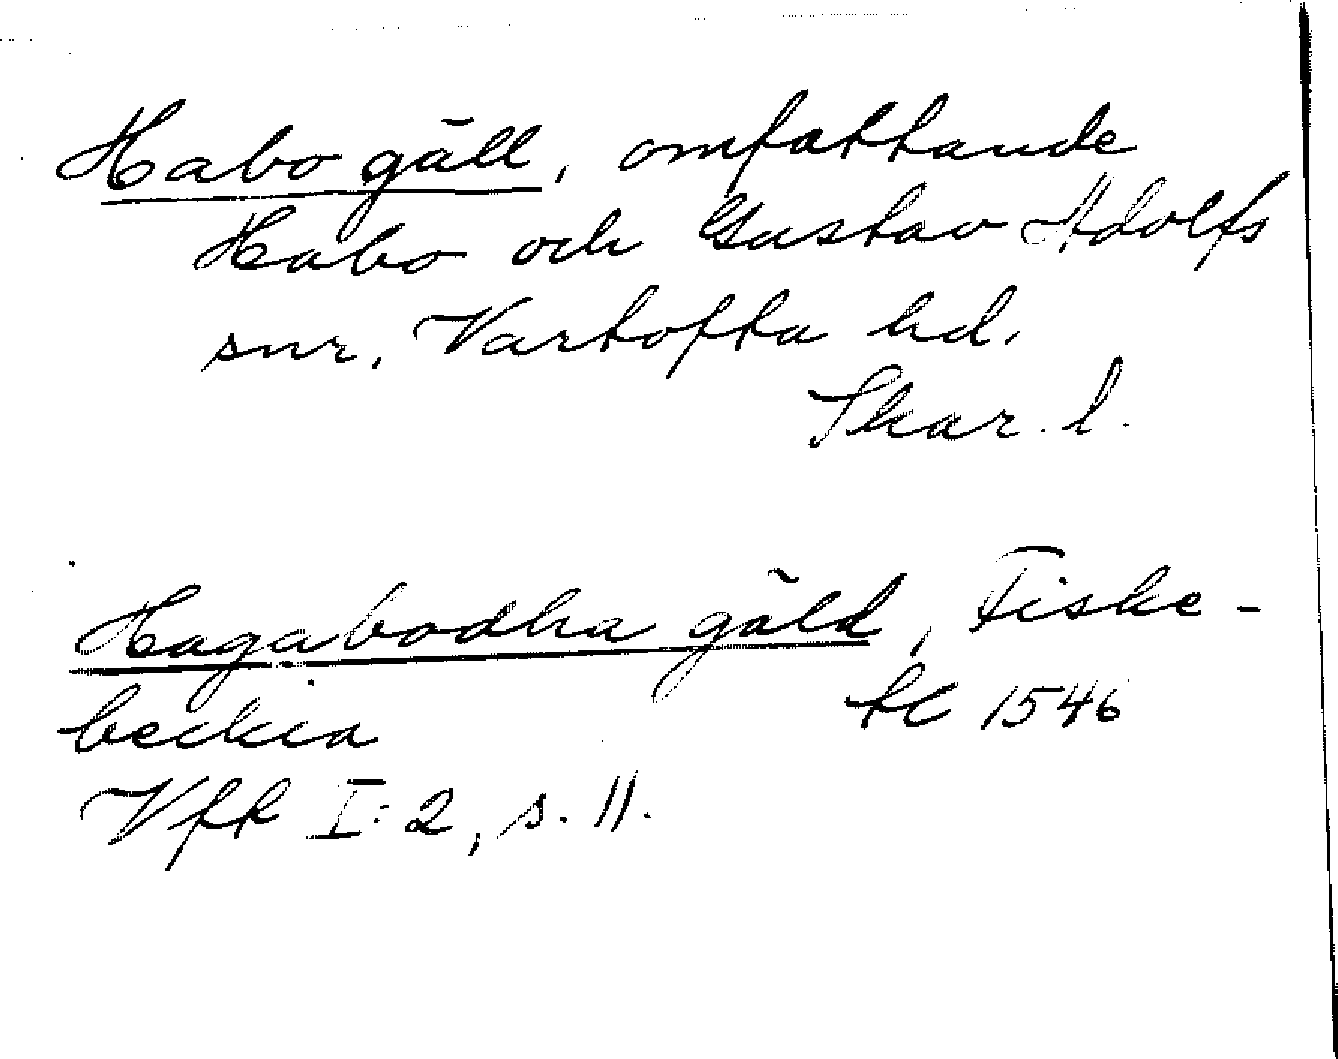 Habo gäll, omfattande
Habo och Gustav Adolfs
snr, Vartofta hd.
Skar. l.
Hagabodha gäld, Fiske-
beckia fC 1546
VFR I:2, s. 11.